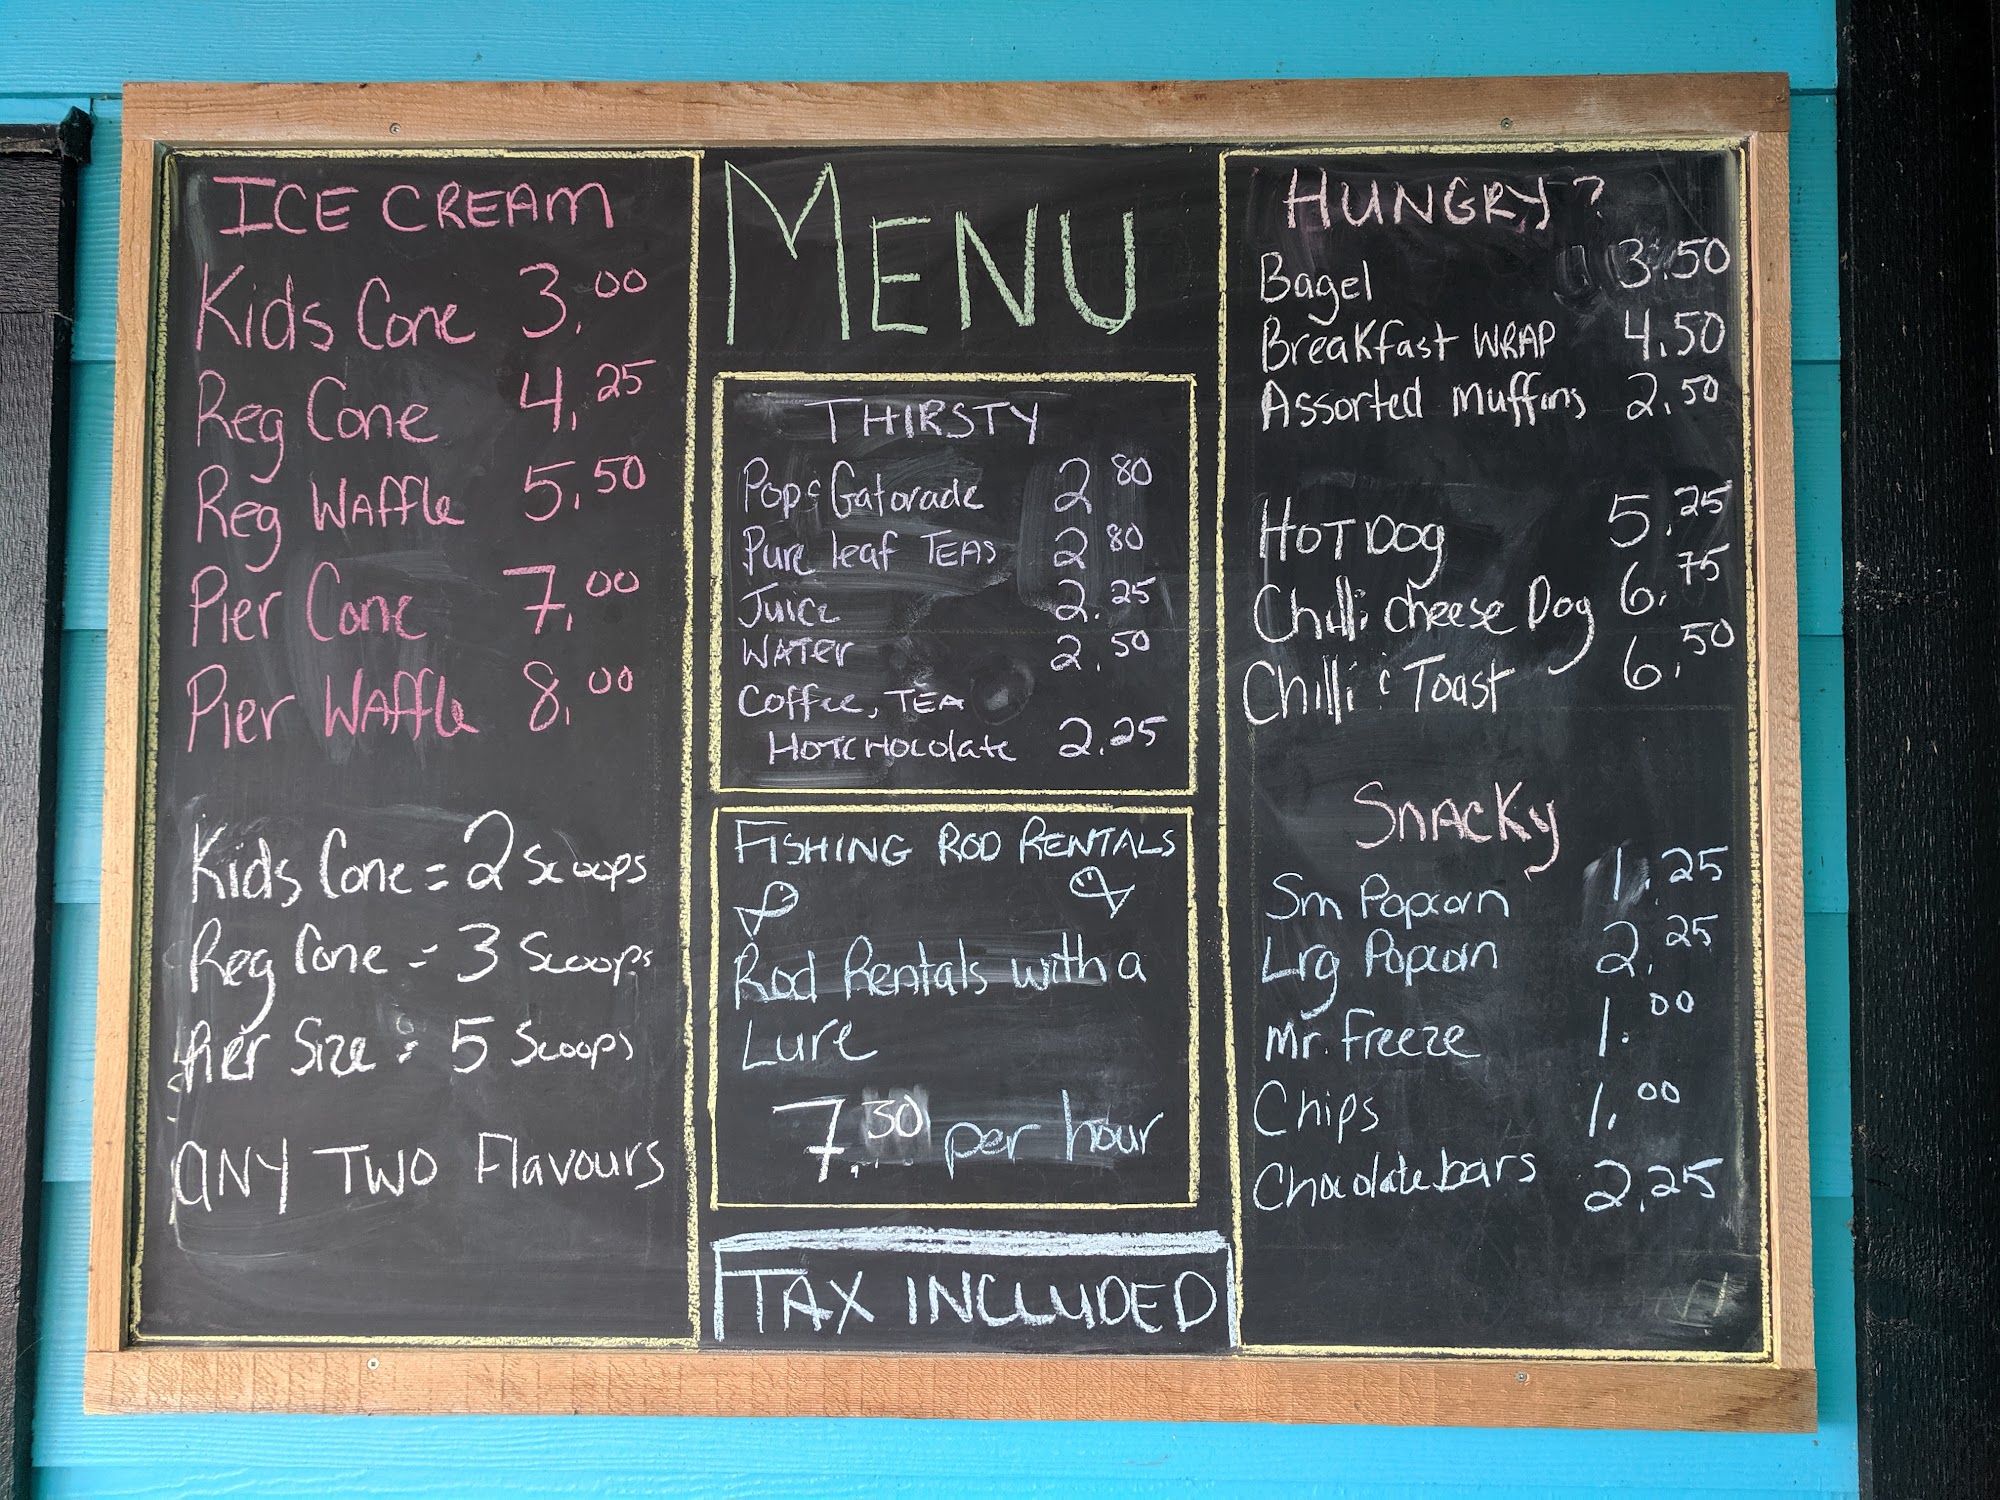 ICE CREAM
Kids Cone 3.00
Reg Cone 4.25
Reg Waffle 5.50
Pier Cone 7.00
Pier Waffle 8.00
Kids Cone = 2 Scoops
Reg Cone = 3 Scoops
Pier Size = 5 Scoops
ANY TWO Flavours
MENU
THIRSTY
Pop & Gatorade 2.80
Pure leaf TEAS 2.80
Juice 2.25
WATer 2.50
Coffee, TEA
HOTCHOColate 2.25
FISHING ROD RENTALS
Rod Rentals with a
Lure
7.30 per hour
TAX INCLUDED
HUNGRY?
Bagel 3.50
Breakfast WRAP 4.50
Assorted Muffins 2.50
HOT DOg 5.25
Chilli cheese Dog 6.75
Chilli & Toast 6.50
SNACKy
Sm Popcorn 1.25
Lrg Popcorn 2.25
Mr. Freeze 1.00
Chips 1.00
Chocolate bars 2.25